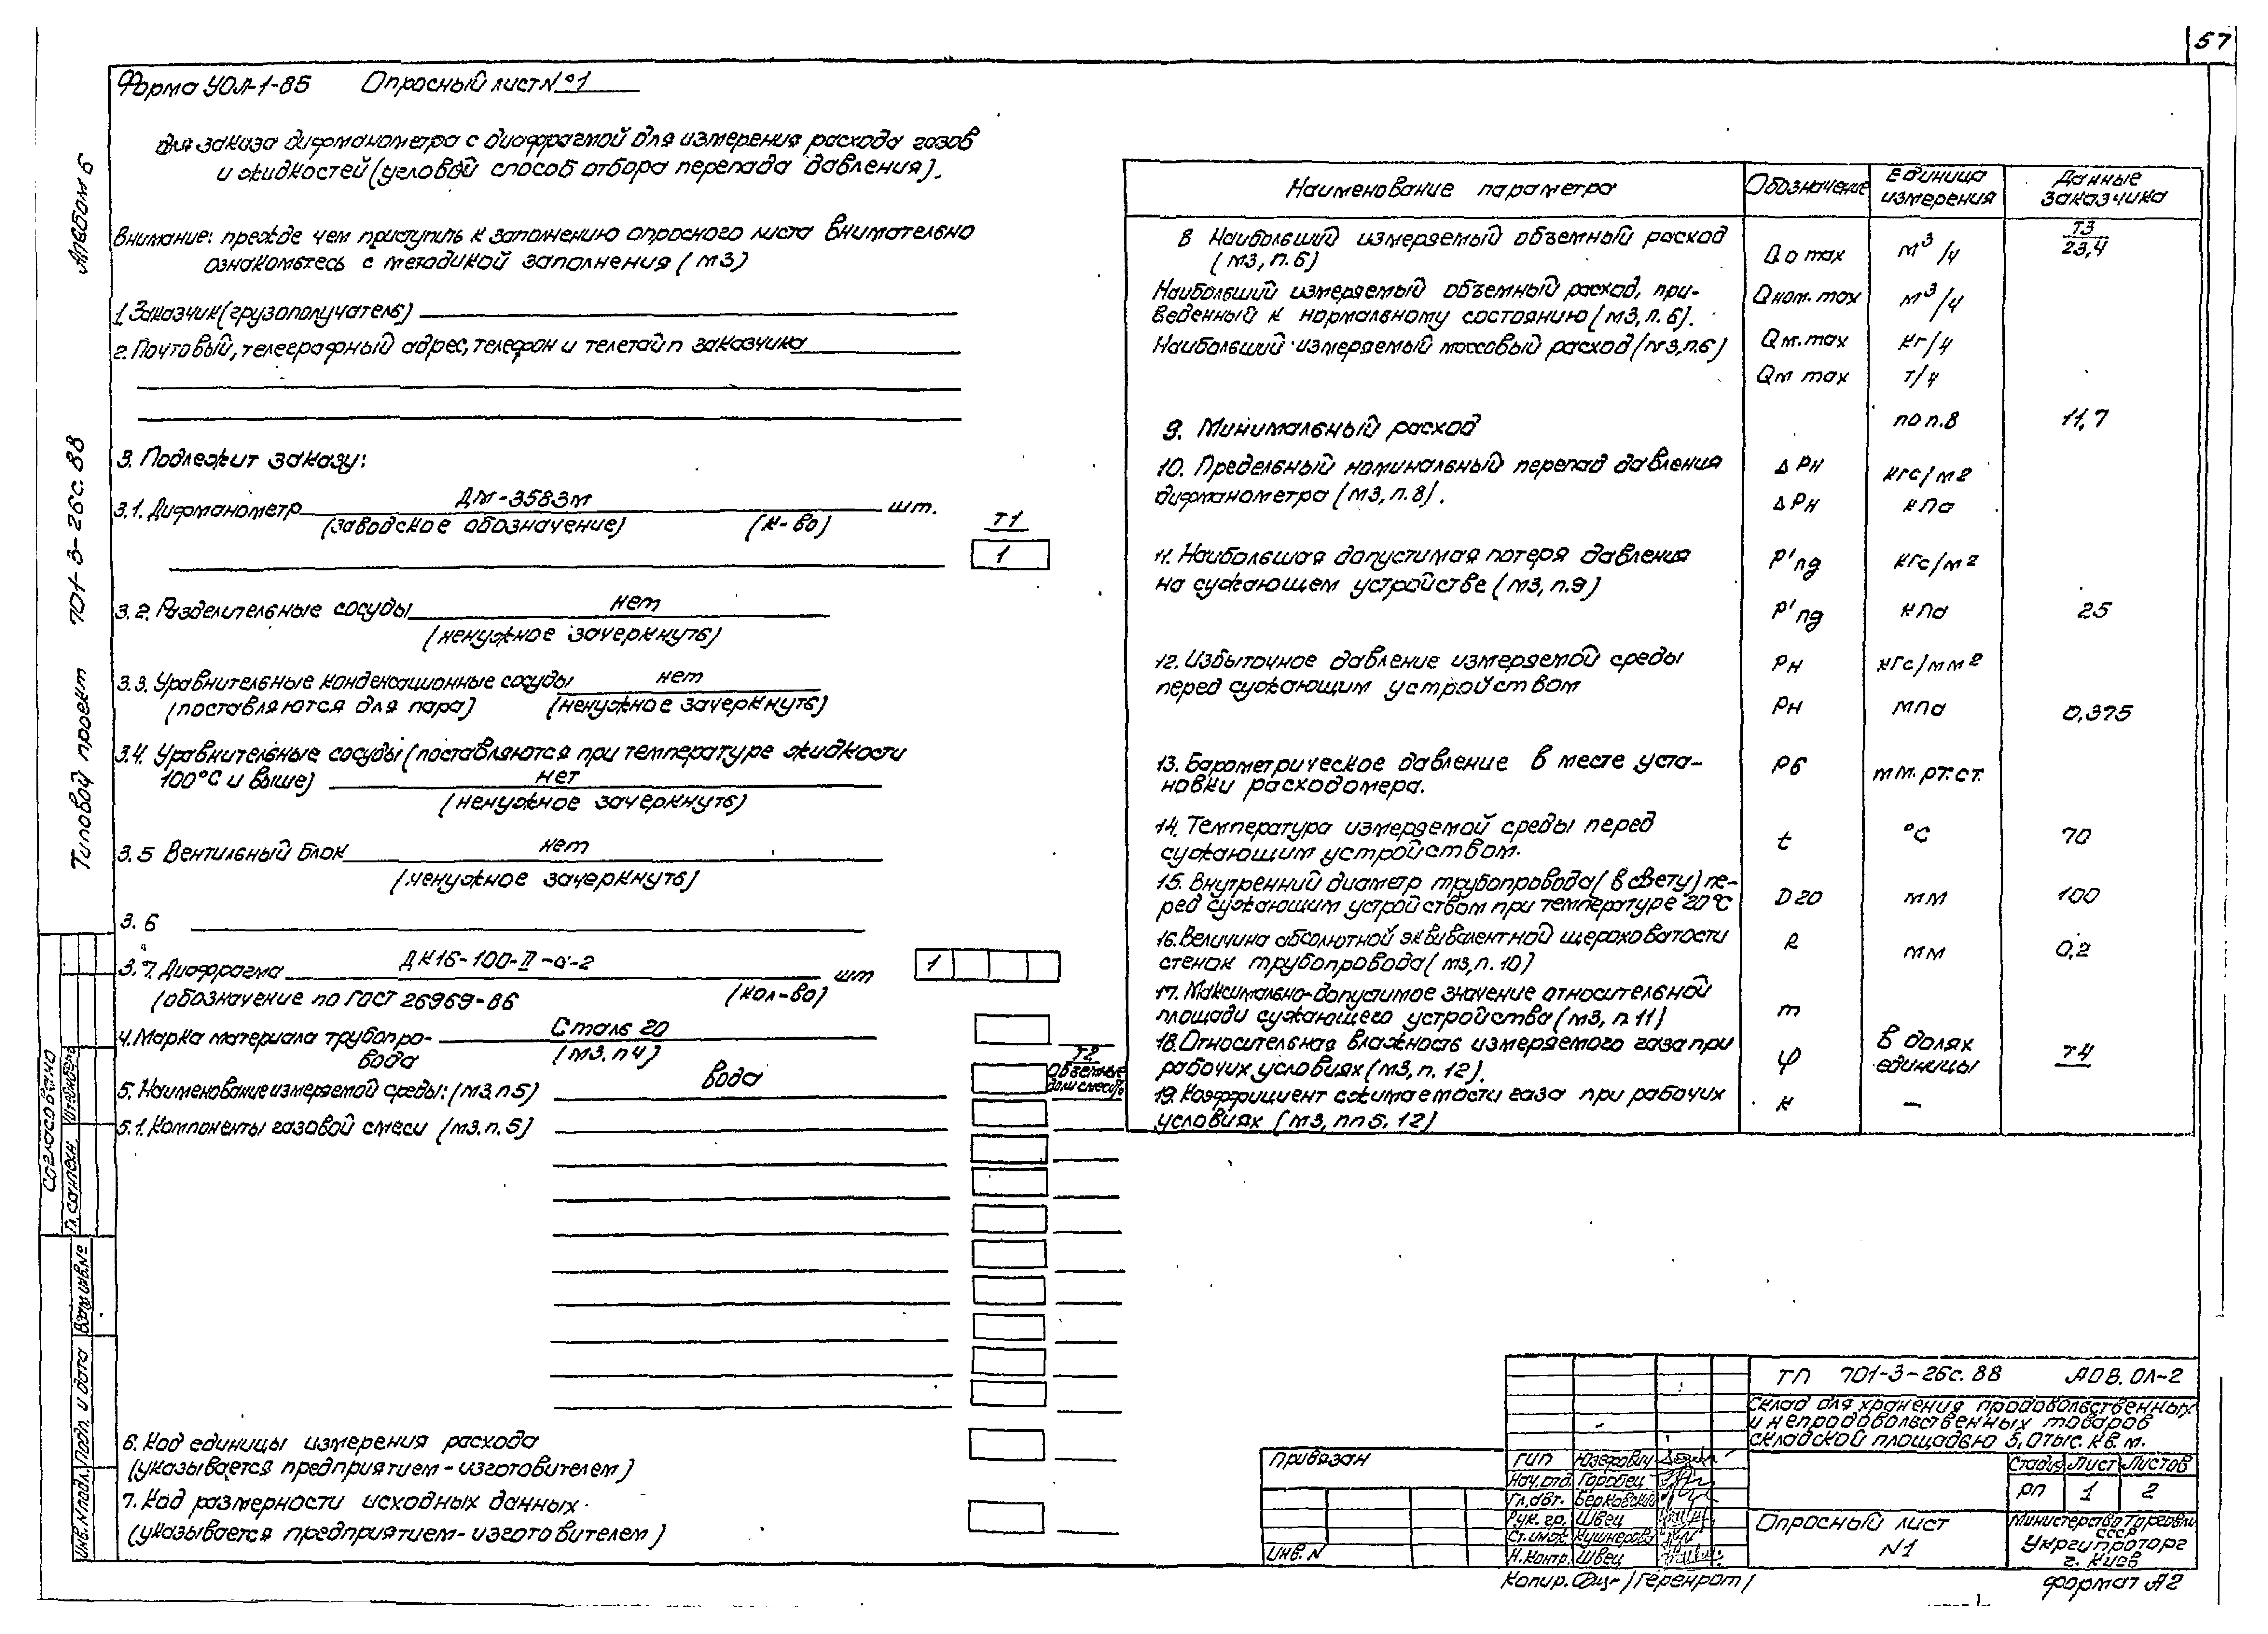 57
Форма УОЛ-1-85 Опросный лист N°1
для заказа дифманометра с диафрагмой для измерения расхода газов
и жидкостей (угловой способ отбора перепада давления).
Внимание: прежде чем приступить к заполнению опросного листа внимательно
ознакомьтесь с методикой заполнения (мЗ)
1. Заказчик (грузополучатель)
2. Почтовый, телеграфный адрес, телефон и телетайп заказчика
3. Подлежит заказу:
3.1. Дифманометр ДМ-3583м шт.
(заводское обозначение) (к-во)
Т1
1
3.2. Разделительные сосуды нет
(ненужное зачеркнуть)
3.3. Уравнительные конденсационные сосуды нет
(поставляются для пара) (ненужное зачеркнуть)
3.4. Уравнительные сосуды (поставляются при температуре жидкости
100°С и выше) нет
(ненужное зачеркнуть)
3.5 Вентильный блок нет
(ненужное зачеркнуть)
3.6
3.7. Диафрагма ДК16-100-II-а-2 шт 1
(обозначение по ГОСТ 26969-86 (кол-во)
4. Марка материала трубопро- Сталь 20
вода (мЗ. п4)
Т2
Объемные
доли смеси%
5. Наименование измеряемой среды: (мЗ. п5) вода
5.1. Компоненты газовой смеси (мЗ. п. 5)
6. Код единицы измерения расхода
(указывается предприятием-изготовителем)
7. Код размерности исходных данных
(указывается предприятием-изготовителем)
Наименование параметра Обозначение Единица измерения Данные заказчика
8 Наибольший измеряемый объемный расход Qо max м³/ч Т3 23,4
(мЗ, п. 6)
Наибольший измеряемый объемный расход, при- Qном. max м³/ч
веденный к нормальному состоянию (мЗ, п. 6).
Наибольший измеряемый массовый расход (мЗ, п.6) Qм. max кг/ч
Qм max т/ч
9. Минимальный расход по п.8 11,7
10. Предельный номинальный перепад давления Δ Рн кгс/м2
дифманометра (мЗ, п. 8). Δ Рн кПа
11. Наибольшая допустимая потеря давления Р'пд кгс/м2
на сужающем устройстве (мЗ, п.9)
Р'пд кПа 25
12. Избыточное давление измеряемой среды Рн кгс/мм2
перед сужающим устройством
Рн мпа 0,375
13. Барометрическое давление в месте уста- Рб мм. рт. ст.
новки расходомера.
14. Температура измеряемой среды перед t °С 70
сужающим устройством.
15. Внутренний диаметр трубопровода (в свету) пе- D20 мм 100
ред сужающим устройством при температуре 20°С
16. Величина абсолютной эквивалентной шероховатости R мм 0,2
стенок трубопровода (мЗ, п. 10)
17. Максимально-допустимое значение относительной m
площади сужающего устройства (мЗ, п 11)
18. Относительная влажность измеряемого газа при φ в долях единицы Т4
рабочих условиях (мЗ, п. 12).
19. Коэффициент сжимаемости газа при рабочих к —
условиях (мЗ, пп 5, 12)
Альбом 6
Типовой проект 701-3-26с. 88
Согласовано
Гл. сантехн. Штейнберг
Взам. инв. №
Подп. и дата
Инв. N подл.
Привязан
Инв. N
ГИП Юзефович
Нач. отд. Горобец
Гл. авт. Берковский
Рук. гр. Швец
Ст. инж. Кушнерова
Н. контр. Швец
ТП 701-3-26с. 88 АОВ. ОЛ-2
Склад для хранения продовольственных
и непродовольственных товаров
складской площадью 5,0 тыс. кв. м.
Стадия Лист Листов
РП 1 2
Опросный лист
N1
Министерство Торговли
СССР
Укргипроторг
г. Киев
Копир. /Геренрот/
Формат А2